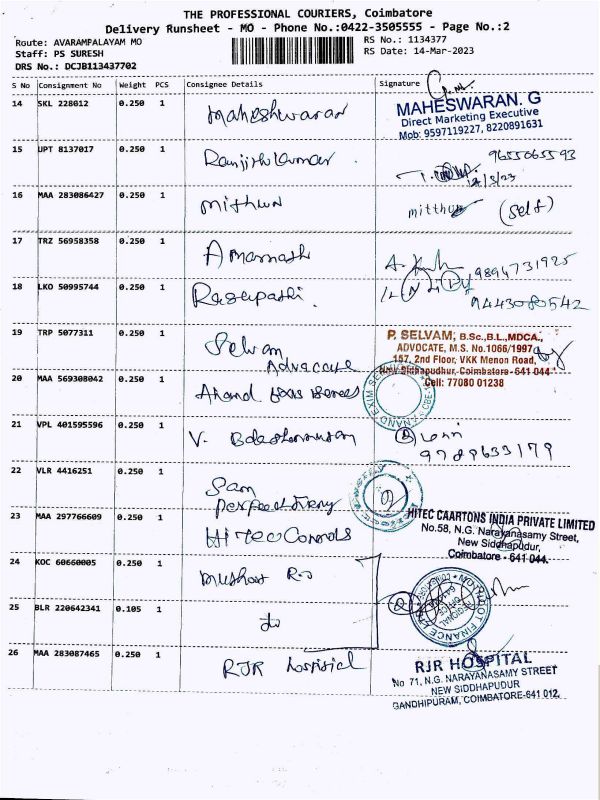 THE PROFESSIONAL COURIERS, Coimbatore
Delivery Runsheet - MO - Phone No.:0422-3505555 - Page No.:2
Route: AVARAMPALAYAM MO
RS No.: 1134377
Staff: PS SURESH
RS Date: 14-Mar-2023
DRS No.: DCJB113437702
S No Consignment No Weight PCS Consignee Details Signature
14 SKL 228012 0.250 1 Maheshwaran
MAHESWARAN. G
Direct Marketing Executive
Mob: 9597119227, 8220891631
15 UPT 8137017 0.250 1 Ranjithkumar
9655065593
14/3/23
16 MAA 283086427 0.250 1 mithun mitthun (self)
17 TRZ 56958358 0.250 1 Amarnath
9894731925
18 LKO 50995744 0.250 1
9443080542
19 TRP 5077311 0.250 1 Selvam
Advocate
P. SELVAM, B.Sc.,B.L.,MDCA.,
ADVOCATE, M.S. No.1066/1997
157, 2nd Floor, VKK Menon Road,
New Siddhapudhur, Coimbatore - 641 044
Cell: 77080 01238
20 MAA 569308042 0.250 1 Anand
21 VPL 401595596 0.250 1 V.
9789633179
22 VLR 4416251 0.250 1 Sam
23 MAA 297766609 0.250 1 Hitec
HITEC CAARTONS INDIA PRIVATE LIMITED
No.58, N.G. Narayanasamy Street,
New Siddhapudur,
Coimbatore - 641 044.
24 KOC 60660005 0.250 1
25 BLR 220642341 0.105 1 do
26 MAA 283087465 0.250 1 RJR hospital
RJR HOSPITAL
No 71, N.G. NARAYANASAMY STREET
NEW SIDDHAPUDUR
GANDHIPURAM, COIMBATORE-641 012.